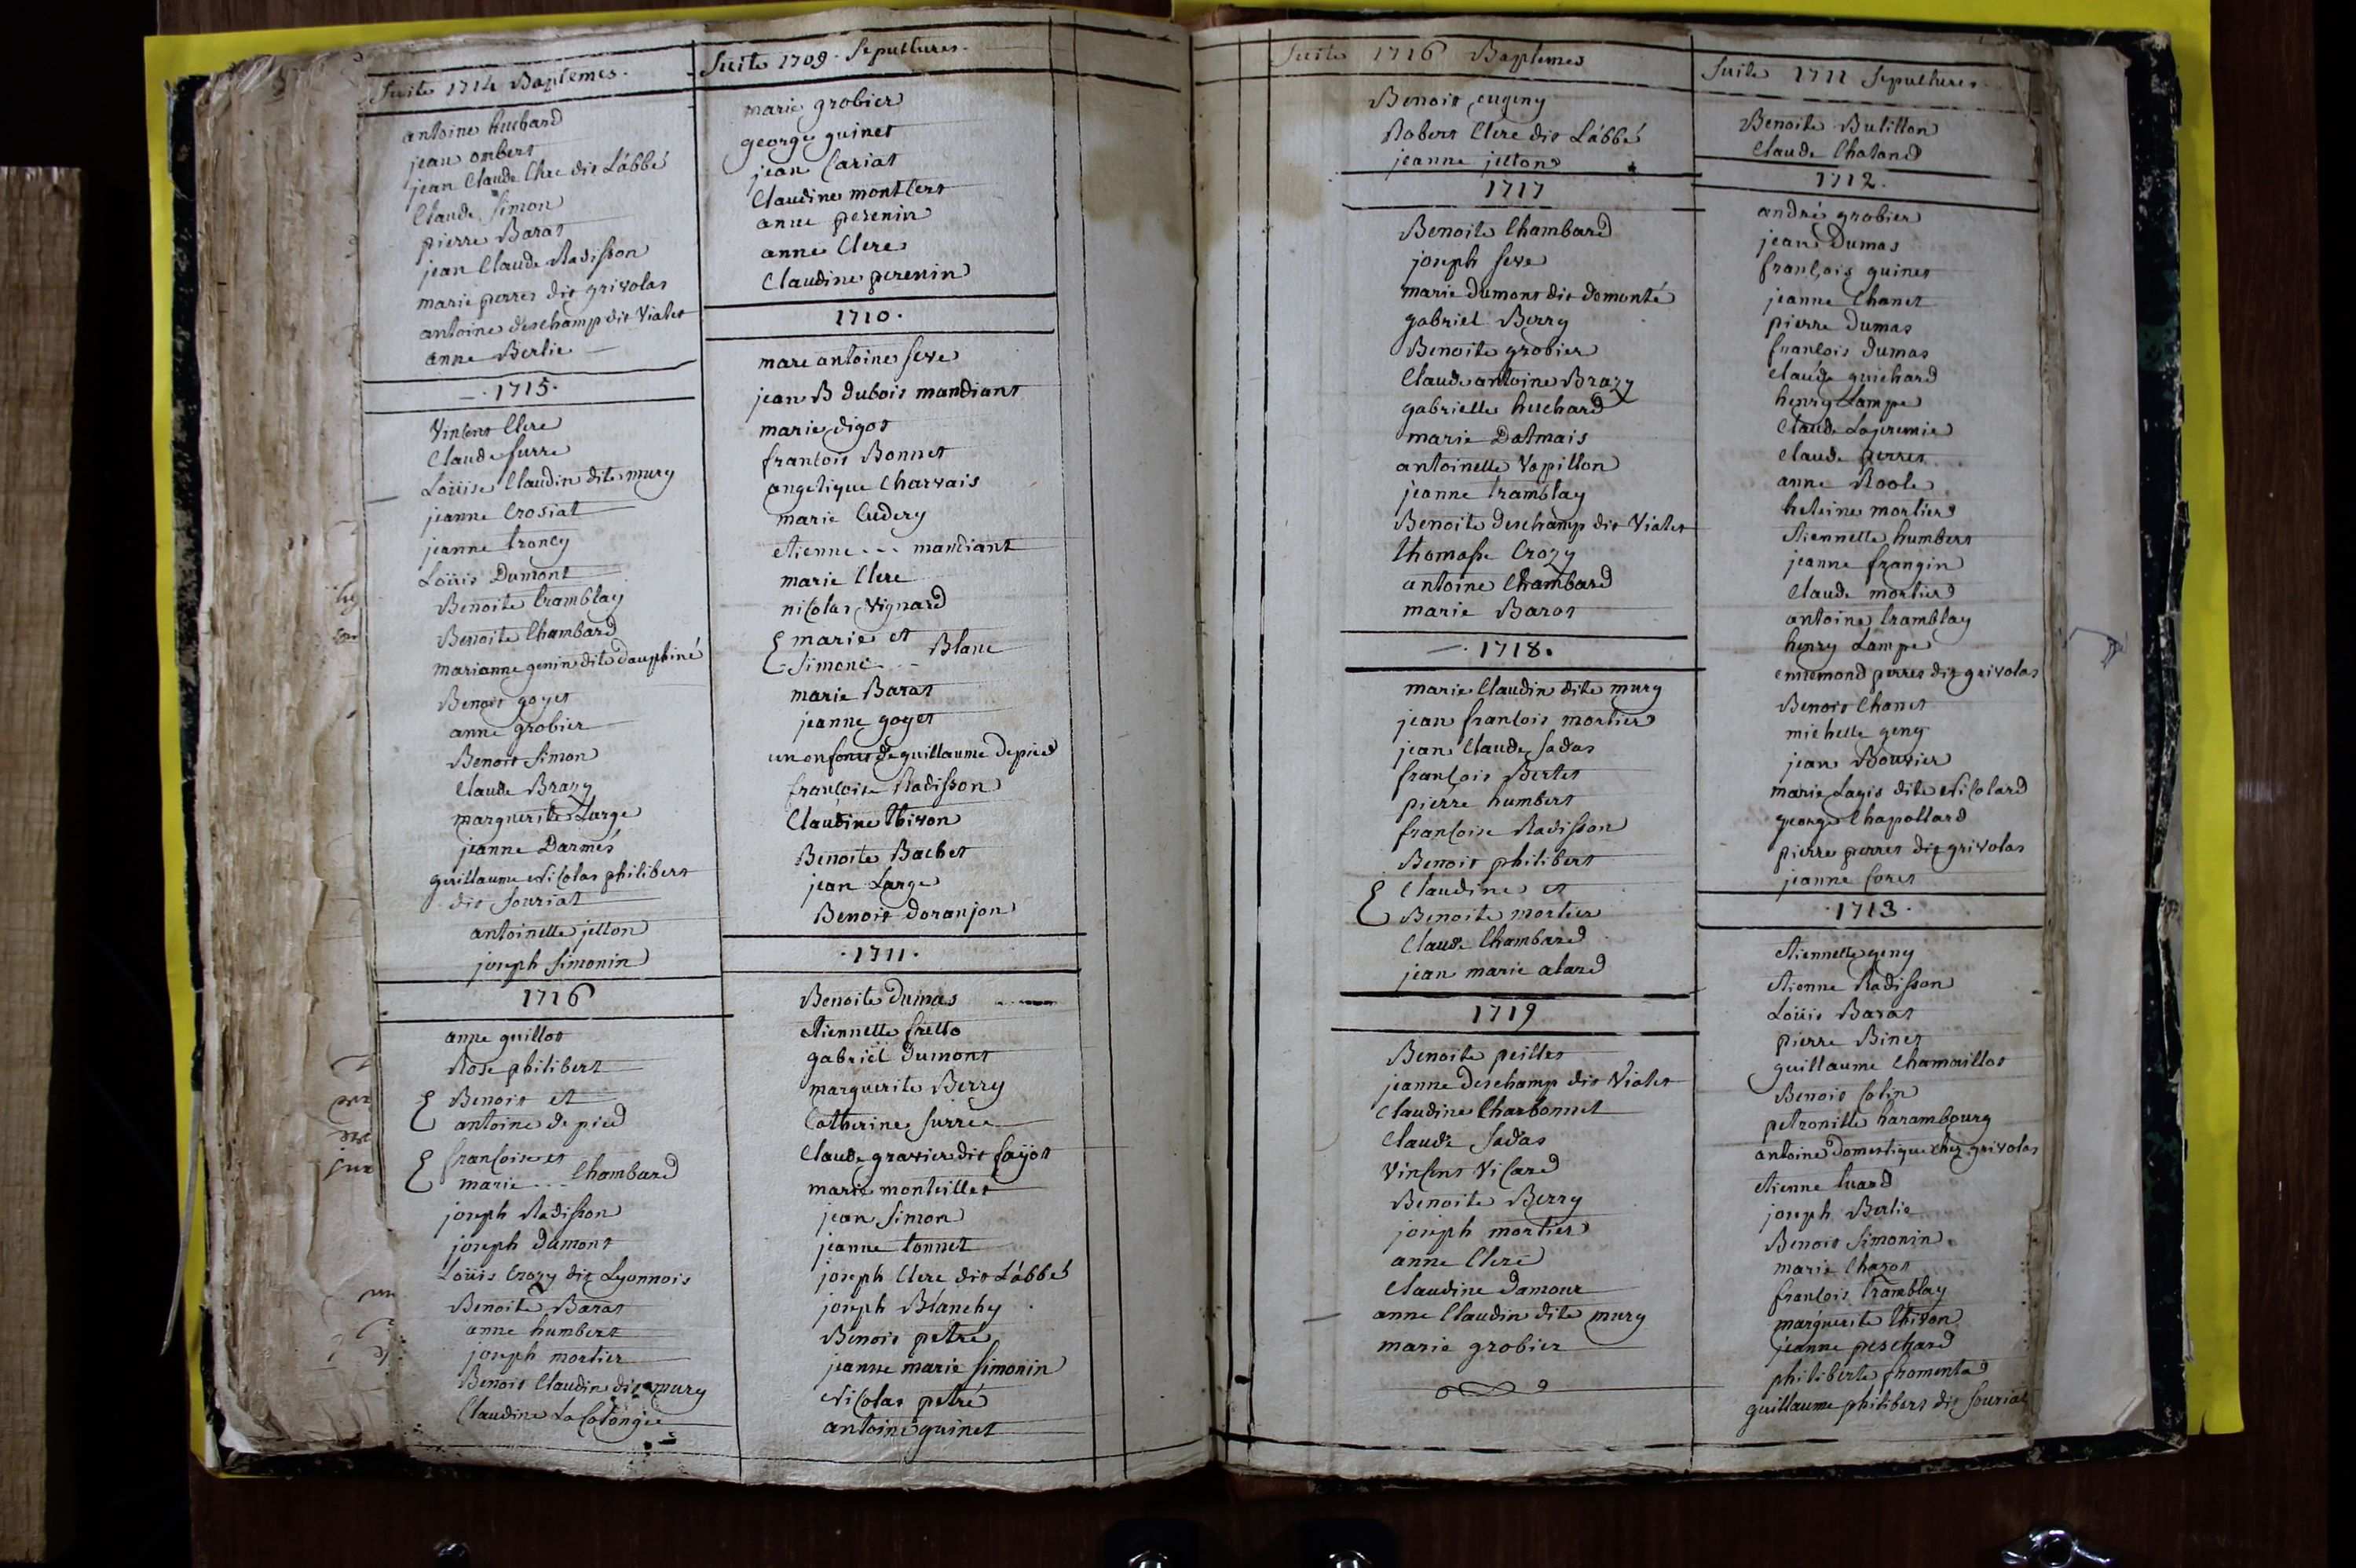 Suite 1714 Baptemes.
antoine huchard
jean ombert
jean Claude Clere dit Lábbé
Claude Simon
pierre Barat
jean Claude Radisson
marie perret dit grivolat
antoine deschamp dit Vialet
anne Berlie
1715.
Vincent Clere
Claude surre
Loüise Claudin dite mury
jeanne Crosiat
jeanne troncy
Loüis Dumont
Benoite tramblay
Benoite Chambard
marianne genin dite dauphiné
Benoit goyet
anne grobier
Benoit Simon
Claude Brazy
marguerite Large
jeanne Darmés
guillaume Nicolas philibert
dit souriat
antoinette jetton
joseph Simonin
1716
anne guillot
Rose philibert
Benoit et
antoine de pied
francoise et
marie ... Chambard
joseph Radisson
joseph dumont
Loüis Crozy dit Lyonnois
Benoite Barat
anne humbert
joseph mortier
Benoit Claudin dit mury
Claudine La Colongée
Suite 1709. Sepultures.
marie grobier
george guinet
jean Cariat
Claudine montlert
anne perenin
anne Clere
Claudine perenin
1710.
marc antoine seve
jean B dubois mandiant
marie digot
francois Bonnet
angelique Charvais
marie Cudery
etienne ... mandiant
marie Clere
nicolas Vignard
marie et
Simone ... Blanc
marie Barat
jeanne goyet
un enfant de guillaume depied
francoise Radisson
Claudine thivon
Benoite Bachet
jean Large
Benoit doranjon
1711.
Benoite dumas
Etiennette fretto
gabriel dumont
marguerite Berry
Catherine surre
Claude gravier dit fayot
marie monteillet
jean Simon
jeanne tonnet
joseph Clere dit Lábbé
joseph Blanchy
Benoit petré
jeanne marie simonin
Nicolas petré
antoine guinet
Suite 1716 Baptemes
Benoit eugeny
Robert Clere dit Lábbé
jeanne jetton
1717
Benoite Chambard
joseph seve
marie dumont dit domonté
gabriel Berry
Benoite grobier
Claude antoine Brazy
gabrielle huchard
marie Dalmais
antoinette Vapillon
jeanne tramblay
Benoite deschamp dit Vialet
thomasse Crozy
antoine Chambard
marie Barat
1718.
marie Claudin dite mury
jean francois mortier
jean Claude sadas
francois Bertet
pierre humbert
francoise Radisson
Benoit philibert
Claudine et
Benoite mortier
Claude Chambard
jean marie alard
1719
Benoite peillet
jeanne deschamp dit Vialet
Claudine Charbonnet
Claude sadas
Vincent Vicard
Benoite Berry
joseph mortier
anne Clere
Claudine damour
anne Claudin dite mury
marie grobier
Suite 1711 Sepultures
Benoite Butillon
Claude Chaland
1712.
andré grobier
jean Dumas
francois guinet
jeanne Chanet
pierre dumas
francois dumas
Claude guichard
henry Lampe
Claude Lapremie
Claude perret
anne Roole
heleine mortier
Etiennette humbert
jeanne frangin
Claude mortier
antoine tramblay
henry Lampe
ennemond perret dit grivolat
Benoit Chanet
michelle geny
jean Bouvier
marie Lagis dite Nicolard
george Chapollard
pierre perret dit grivolat
jeanne foret
1713.
Etiennette geny
Etienne Radisson
Loüis Barat
pierre Binet
guillaume Chamaillot
Benoit Colin
petronille harambourg
antoine domestique chez grivolat
Etienne luard
joseph Berlie
Benoit Simonin
marie Chazot
francois tramblay
marguerite thivon
jeanne peschard
philiberte fromenta
guillaume philibert dit souriat